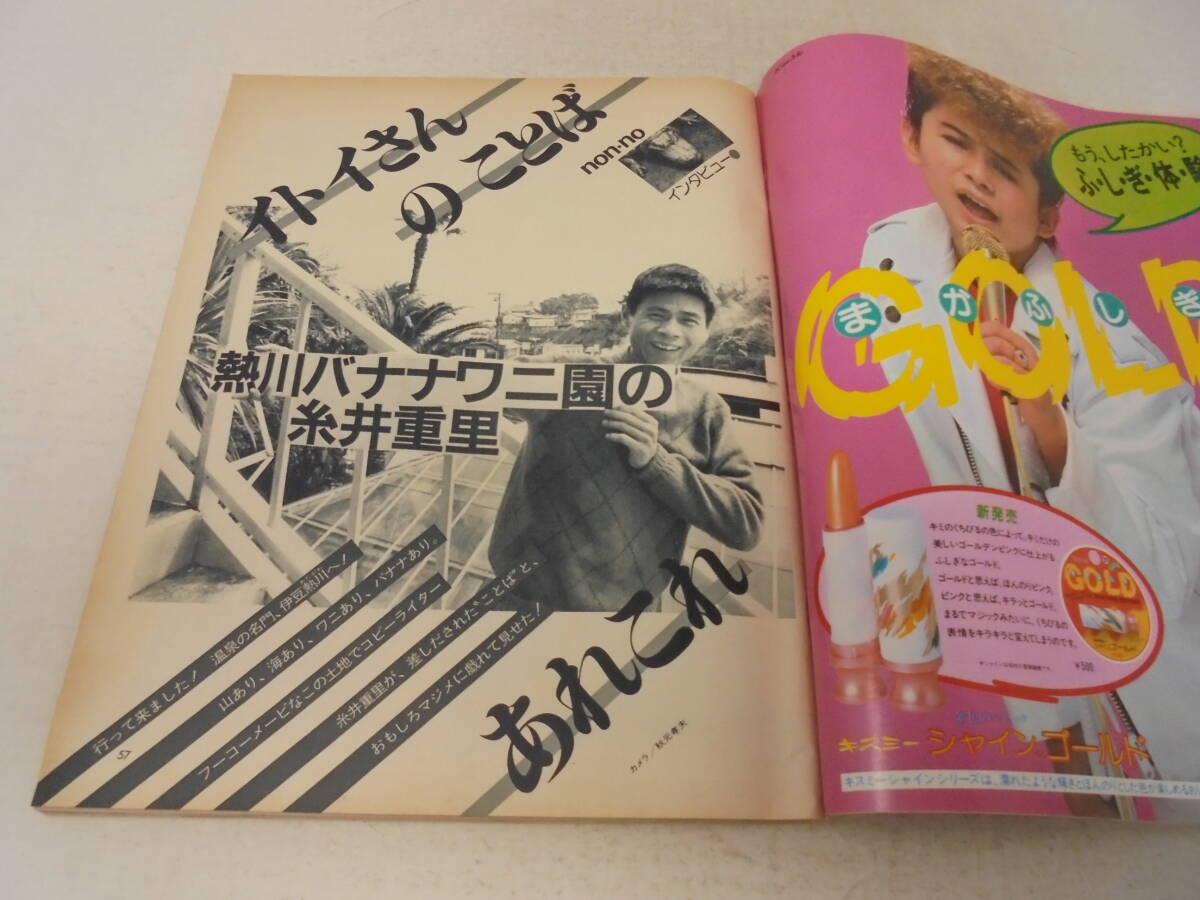 イトイさん
のことば
non・no
インタビュー●
熱川バナナワニ園の
糸井重里
行って来ました! 温泉の名門、伊豆熱川へ!
山あり、海あり、ワニあり、バナナあり。
フーコーメービなこの土地でコピーライター
糸井重里が、差しだされた“ことば”と、
おもしろマジメに戯れて見せた!
あれこれ
カメラ/秋元孝夫
57
もう、したかい?
ふ・し・ぎ・体・験
GOLD
まかふしぎ
新発売
キミのくちびるの色によって、キミだけの
美しいゴールデンピンクに仕上がる
ふしぎなゴールド。
ゴールドと思えば、ほんのりピンク。
ピンクと思えば、キラッとゴールド。
まるでマジックみたいに、くちびるの
表情をキラキラと変えてしまうのです。
GOLD
¥500
キスミー シャインゴールド
キスミーシャインシリーズは、濡れたような輝きとほんのりとした色が楽しめるお